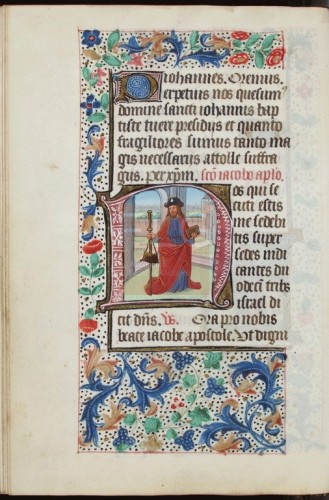 Iohannes. Oremus
Perpetuis nos quesum⁹
domine sancti iohannis bap
tiste tuere presidiis et quanto
fragiliores sumus tanto ma
gis necessariis attolle suffra
giis. per xp̄m. sc̄o iacobo aplo.
os qui se
cuti estis
me sedebi
tis super
sedes iudi
cantes du
odecī tribs
israel di
cit dn̄s. Vs. Ora pro nobis
beate iacobe apostole. Vt digni